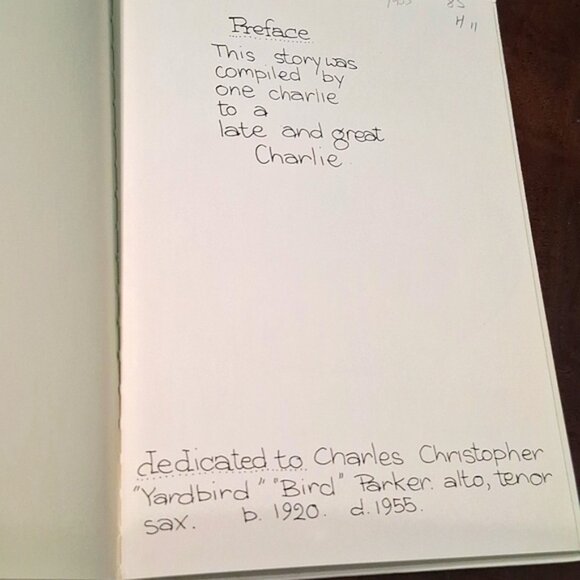 85
H 11
Preface
This story was
compiled by
one charlie
to a
late and great
Charlie.
dedicated to Charles Christopher
"Yardbird" "Bird" Parker. alto, tenor
sax. b. 1920. d. 1955.